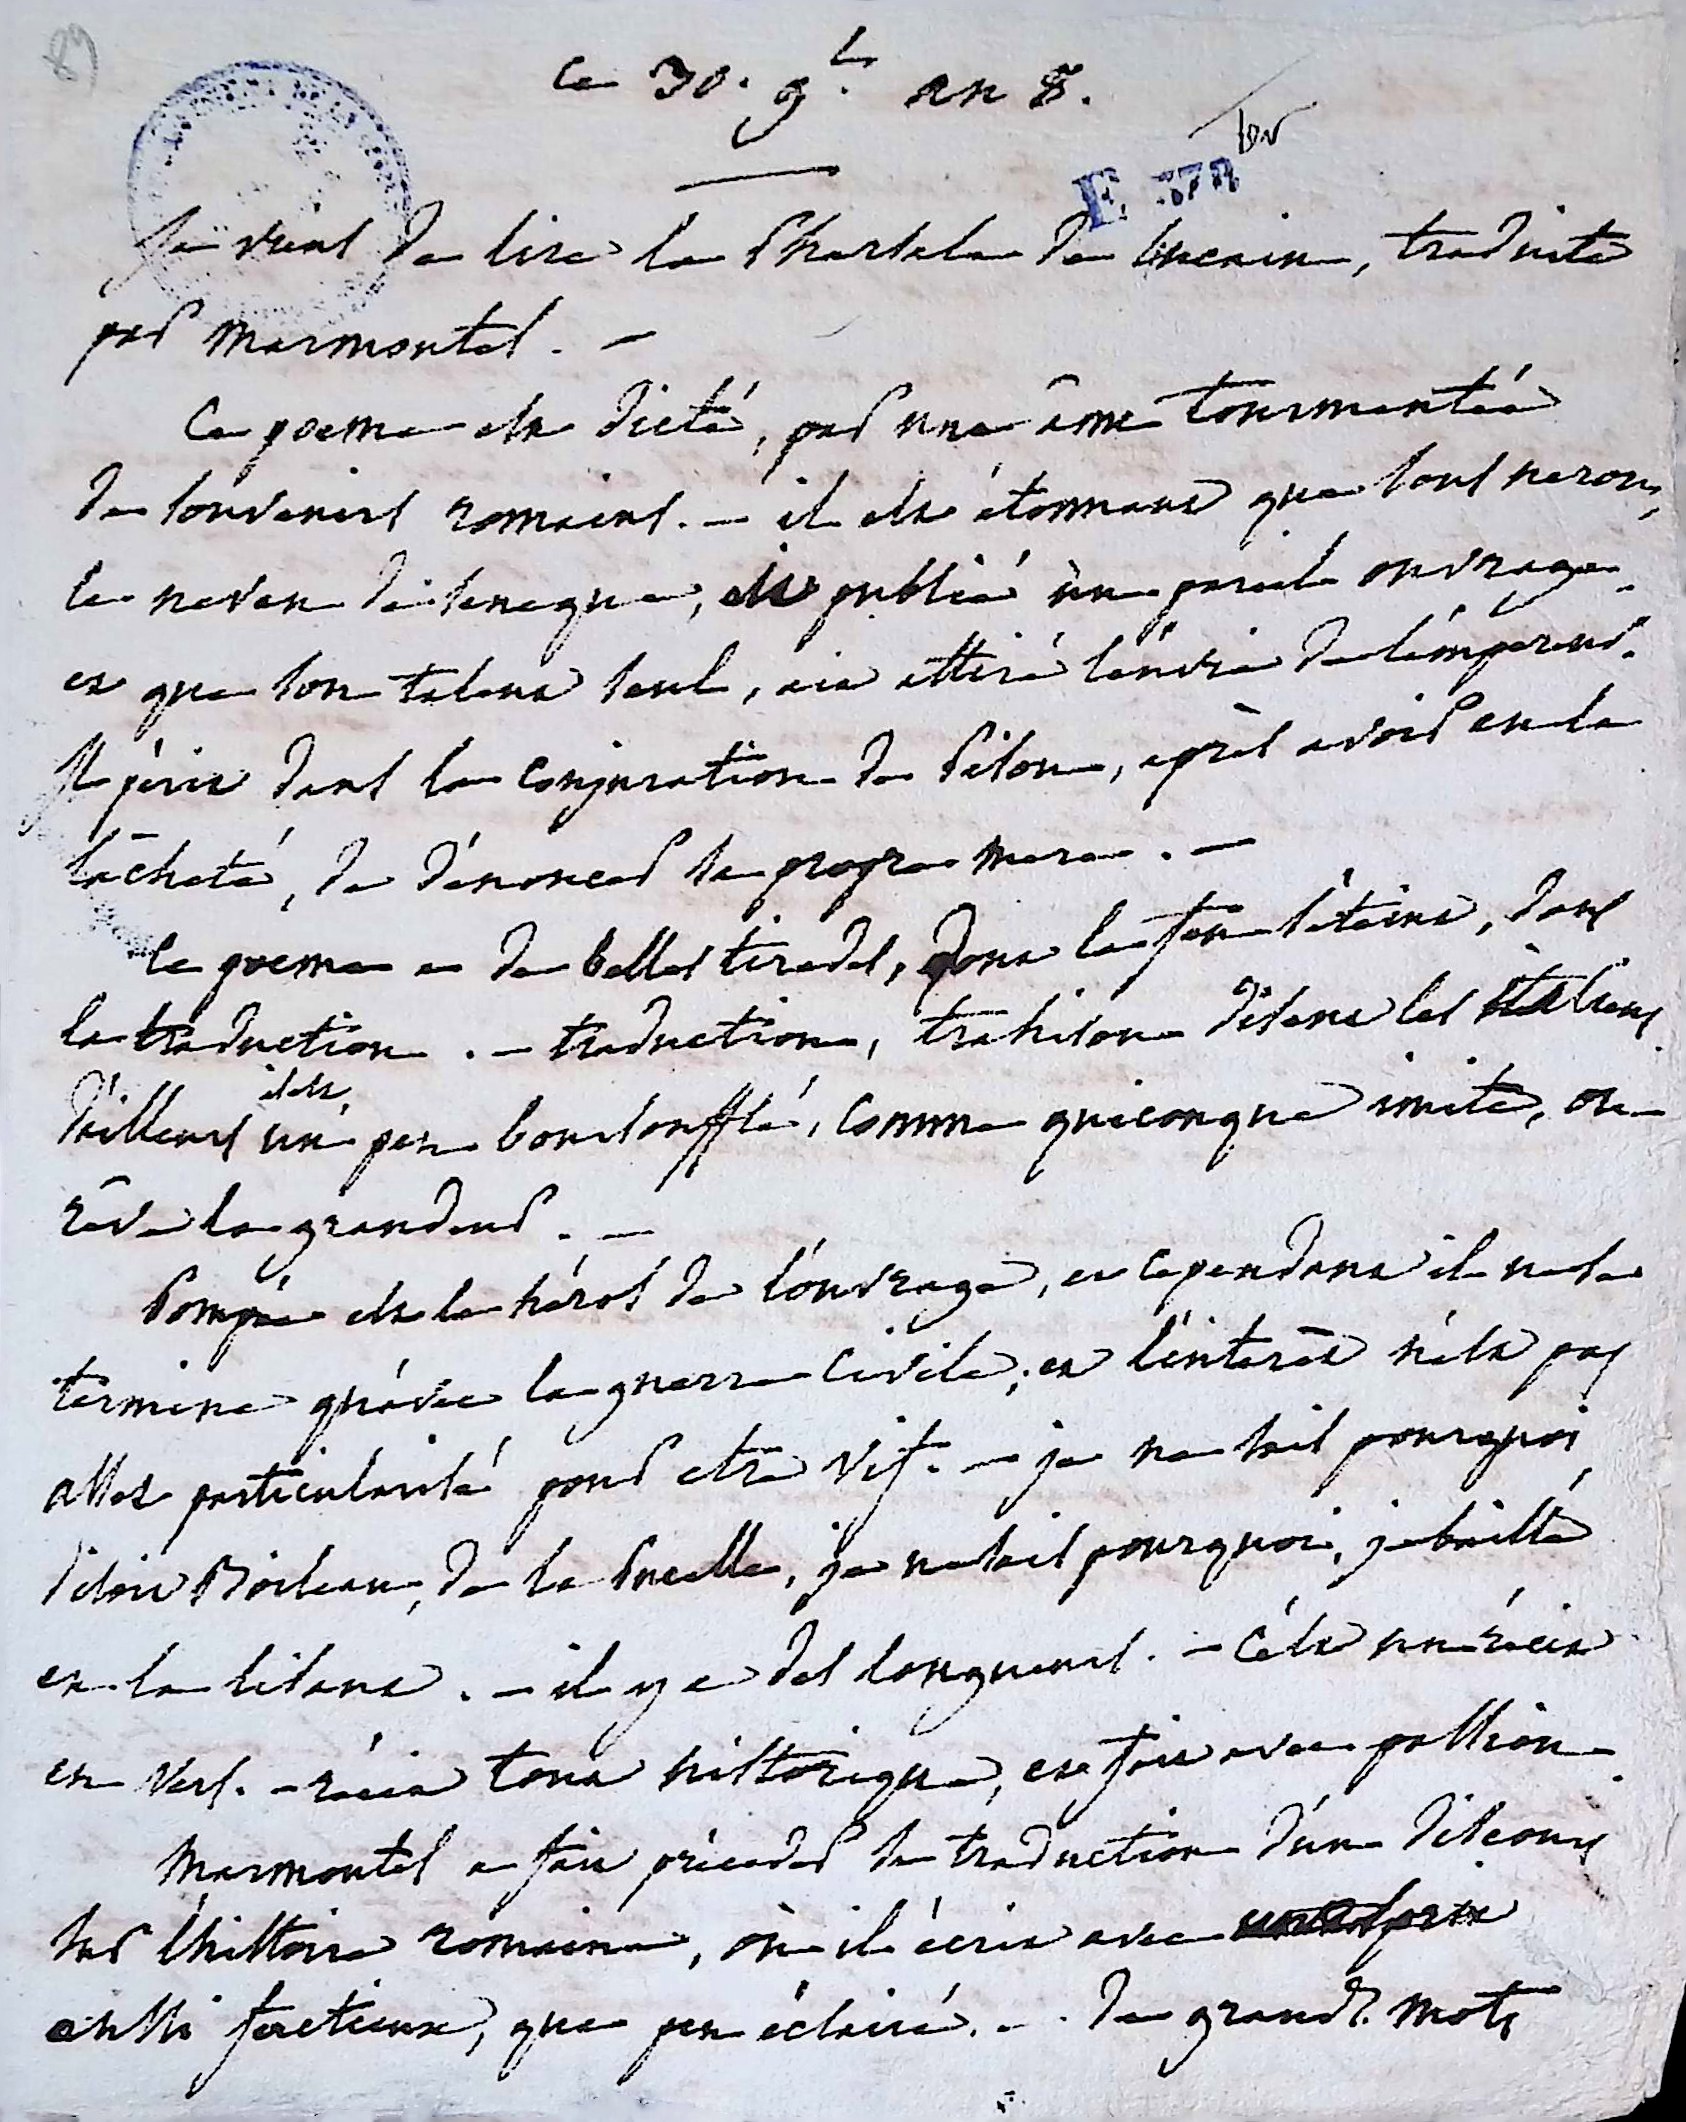 89
ce 30. g.l an 8.
Je viens de lire la Pharsale de Lucain, traduite
par Marmontel. —
Ce poeme est dicté, par une âme tourmentée
de souvenirs romains. — il est étonnant que sous neron,
le neveu de seneque, ait publié un pareil ouvrage.
et que son talent seul, ait attiré l'envie de l'empereur.
Il périt dans la conjuration de Pison, après avoir eu la
lâcheté, de dénoncer sa propre mere. —
Le poeme a de belles tirades, dont le feu s'éteint, dans
la traduction. — traduction, trahison disent les italiens.
d'ailleurs il est, un peu boursoufflé, comme quiconque imite, ou
rêve la grandeur. —
Pompée est le héros de l'ouvrage, et cependant il ne se
termine qu'avec la guerre civile; et l'intérêt n'est pas
assez particularisé pour etre vif. — je ne sais pourquoi,
disoit Boileau, de la Pucelle, je ne sais pourquoi, je baille
en la lisant. — il y a des longueurs. — C'est un récit
en vers. — récit tout historique, et fait avec passion.
Marmontel a fait préceder sa traduction d'un discours
sur l'histoire romaine, où il écrit avec
aussi factieux, que peu éclairé. — de grands mots